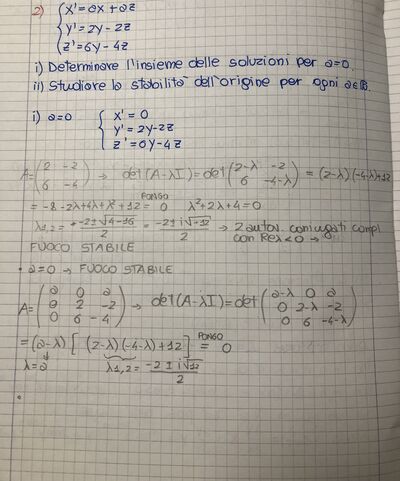 2) { x' = ax + az
y' = 2y - 2z
z' = 6y - 4z
i) Determinare l'insieme delle soluzioni per a=0.
ii) Studiare la stabilità dell'origine per ogni a∈ℝ.
i) a=0 { x' = 0
y' = 2y - 2z
z' = 6y - 4z
A = (2 -2
6 -4) → det(A-λI) = det(2-λ -2
6 -4-λ) = (2-λ)(-4-λ)+12
= -8 -2λ+4λ+λ²+12 = 0 λ²+2λ+4=0
PONGO
λ1,2 = -2±√4-16 / 2 = -2±i√12 / 2 → 2 autov. coniugati compl.
con Reλ<0 →
FUOCO STABILE
• a=0 → FUOCO STABILE
A = (a 0 a
0 2 -2
0 6 -4) → det(A-λI) = det(a-λ 0 a
0 2-λ -2
0 6 -4-λ)
= (a-λ) [(2-λ)(-4-λ)+12] = 0
PONGO
λ=a λ1,2 = -2±i√12 / 2